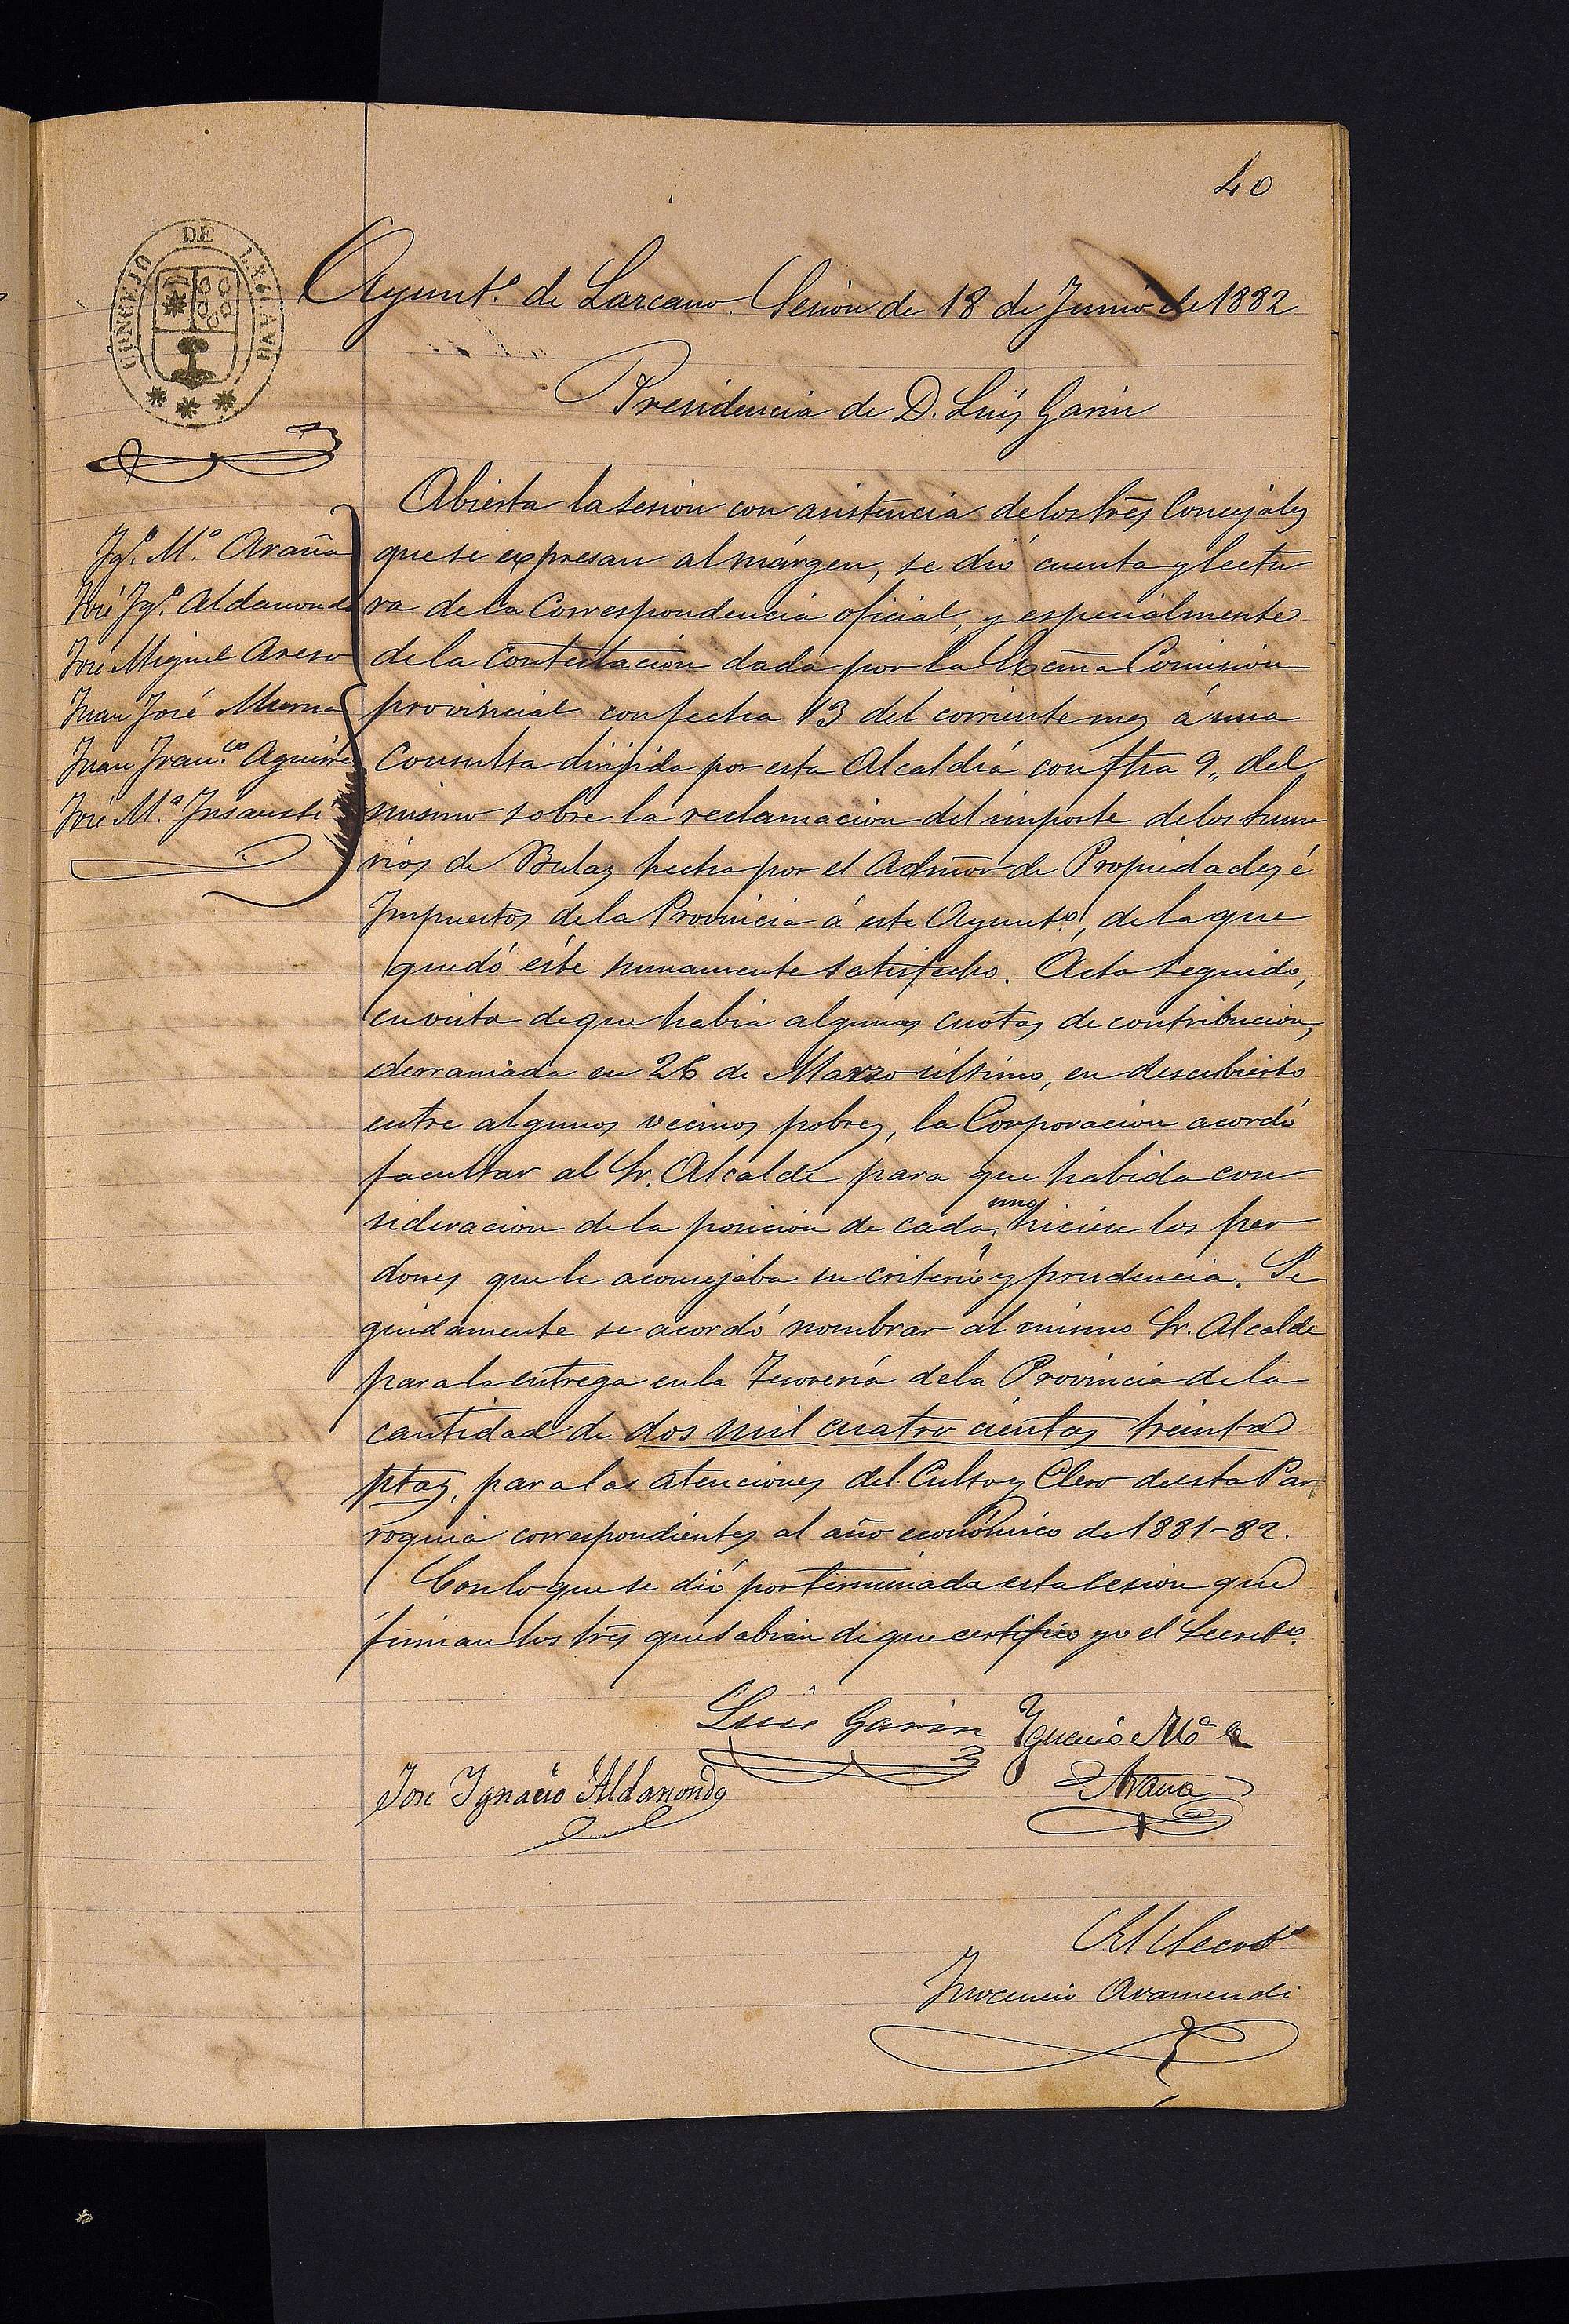 40
CONCEJO DE LXCANO
Ayunt.º de Lazcano. Sesion de 18 de Junio de 1882
Presidencia de D. Luis Garin
Ygº. M.ª Araña
José Ygº. Aldanondo
José Miguel Areso
Juan José Murua
Juan Fran.co Aguirre
José M.ª Ynsausti
Abierta la sesion con asistencia de los Sres Concejales
que se expresan al márgen, se dió cuenta y lectu
ra de la Correspondencia oficial, y especialmente
de la contestacion dada por la Excma Comision
provincial con fecha 13 del corriente mes á una
Consulta dirijida por esta Alcaldia con fha 9,, del
mismo sobre la reclamacion del importe de los Suma
rios de Bulas hecha por el Admor de Propiedades é
Impuestos de la Provincia á este Ayunto., de la que
quedó este sumamente satisfecho. Acto seguido,
en vista de que habia algunas cuotas de contribucion,
derramada en 26 de Marzo último, en descubierto
entre algunos vecinos pobres, la Corporacion acordó
facultar al Sr. Alcalde para que habida con
sideracion de la posicion de cada uno hiciese los per
dones que le aconsejaba su criterio y prudencia. Se
guidamente se acordó nombrar al mismo Sr. Alcalde
para la entrega en la Tesorería de la Provincia de la
cantidad de dos mil cuatro cientas treinta
ptas, para las atenciones del Culto y Clero de esta Par
roquia correspondientes al año económico de 1881-82.
Con lo que se dió por terminada esta sesion que
firman los Sres que sabian de que certifico yo el Secretº.
Luis Garin Ygnacio Mª
Jose Ygnacio Aldanondo Arana
El Secretº
Inocencio Aramendi